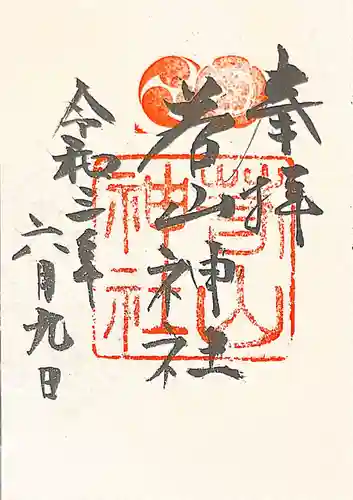 奉拝
山神社
令和三年
六月九日
神社